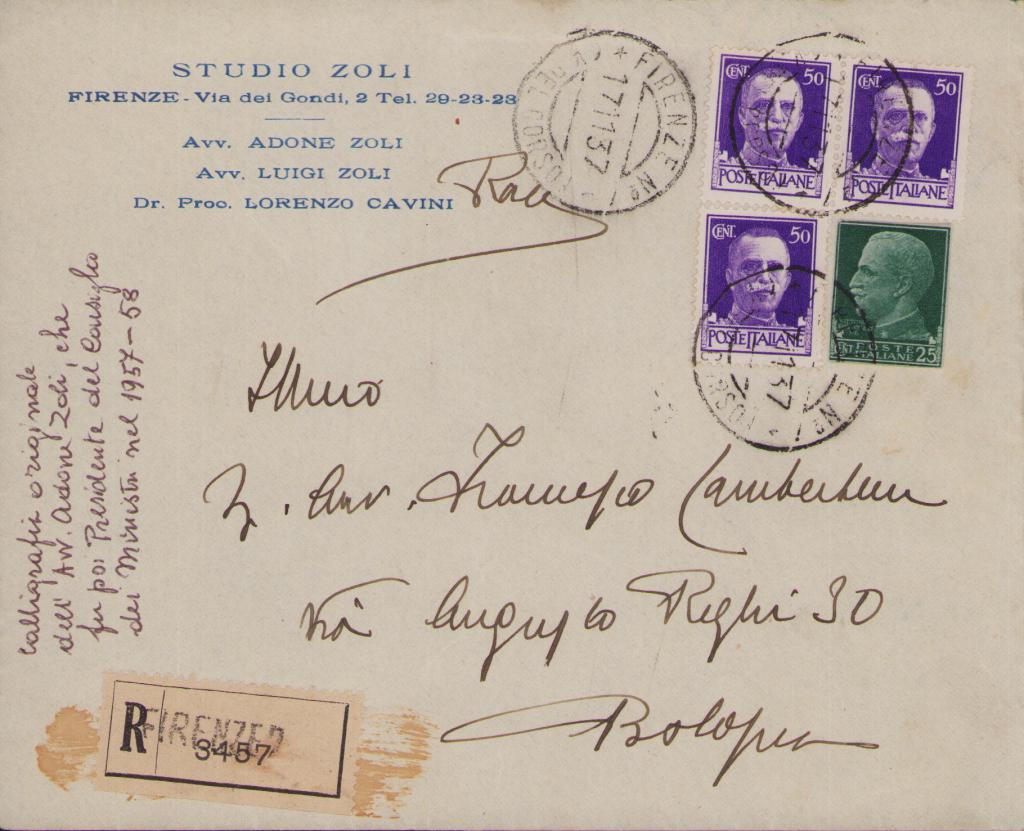 STUDIO ZOLI
FIRENZE - Via dei Gondi, 2 Tel. 29-23-23
Avv. ADONE ZOLI
Avv. LUIGI ZOLI
Dr. Proc. LORENZO CAVINI
Racc
FIRENZE No 1
17 11 37
CENT. 50
POSTE ITALIANE
CENT. 50
POSTE ITALIANE
CENT. 50
POSTE ITALIANE
POSTE
ITALIANE 25
Illmo
Avv. Francesco Lambertini
Via Augusto Righi 30
Bologna
calligrafia originale
dell' Avv. Adone Zoli, che
fu poi Presidente del Consiglio
dei Ministri nel 1957-58
R FIRENZE
3457